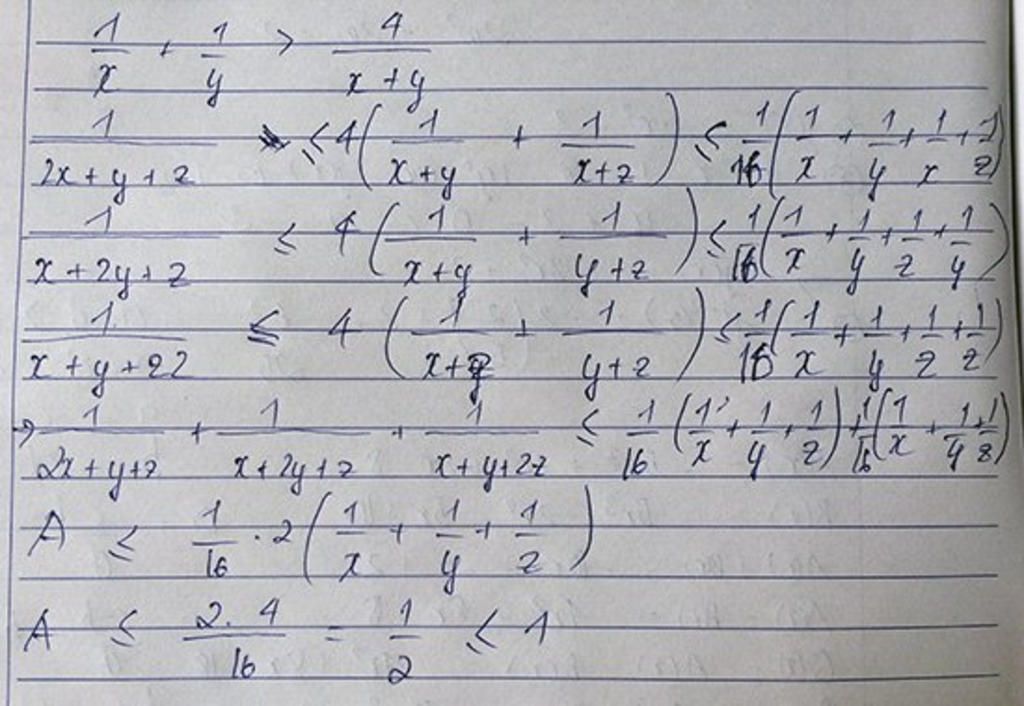 1/x + 1/y > 4/(x + y)
1/(2x + y + z) ≤ 4(1/(x+y) + 1/(x+z)) ≤ 1/16(1/x + 1/y + 1/x + 1/z)
1/(x + 2y + z) ≤ 4(1/(x+y) + 1/(y+z)) ≤ 1/16(1/x + 1/y + 1/z + 1/y)
1/(x + y + 2z) ≤ 4(1/(x+y) + 1/(y+z)) ≤ 1/16(1/x + 1/y + 1/z + 1/z)
→ 1/(2x+y+z) + 1/(x+2y+z) + 1/(x+y+2z) ≤ 1/16(1/x + 1/y + 1/z) + 1/16(1/x + 1/y + 1/z)
A ≤ 1/16 . 2(1/x + 1/y + 1/z)
A ≤ (2. 4)/16 = 1/2 ≤ 1